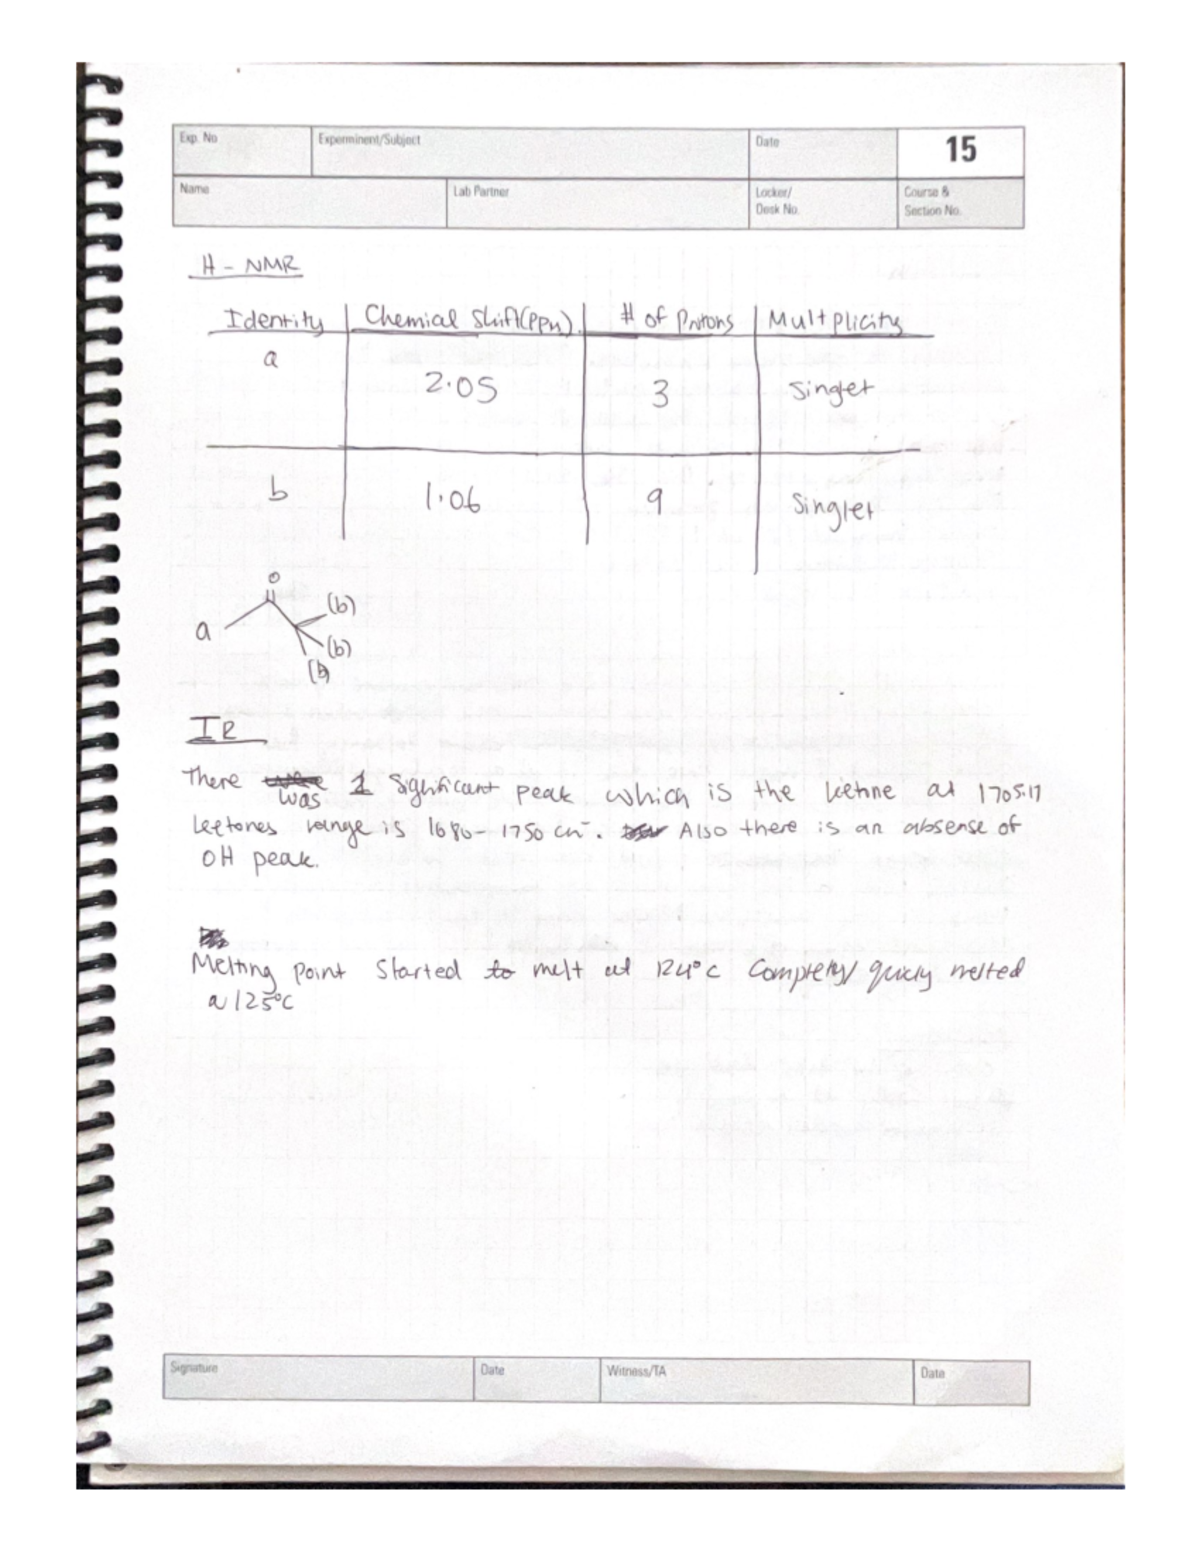 Exp. No Experminent/Subject Date 15
Name Lab Partner Locker/ Desk No. Course & Section No.
H - NMR
Identity Chemial Shift(ppm) # of Protons Multplicity
a 2.05 3 Singlet
b 1.06 9 Singlet
O
a (b)
(b)
(b)
IR
There was 1 significant peak which is the ketone at 1705.17
ketones range is 1680-1750 cm-. Also there is an absense of
OH peak.
Melting point Started to melt at 124°C Completely/ quickly melted
a 125°C
Signature Date Witness/TA Date